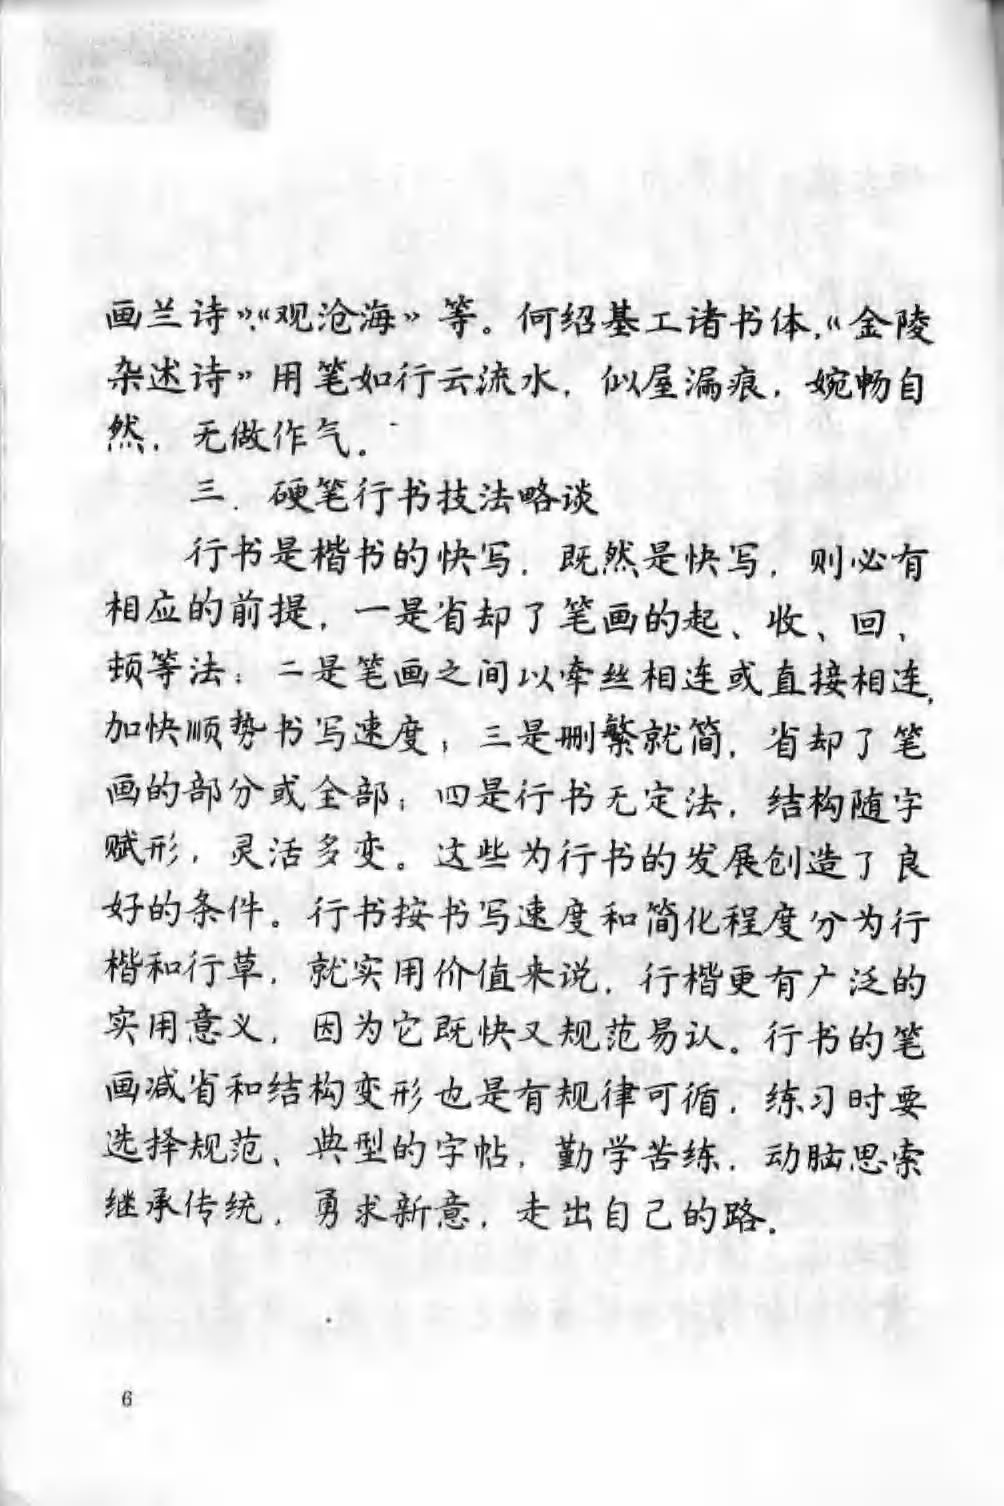 画兰诗》、《观沧海》等。何绍基工诸书体，《金陵
杂述诗》用笔如行云流水，似屋漏痕，婉畅自
然，无做作气。
三．硬笔行书技法略谈
行书是楷书的快写，既然是快写，则必有
相应的前提，一是省却了笔画的起、收、回、
顿等法；二是笔画之间以牵丝相连或直接相连，
加快顺势书写速度；三是删繁就简，省却了笔
画的部分或全部；四是行书无定法，结构随字
赋形，灵活多变。这些为行书的发展创造了良
好的条件。行书按书写速度和简化程度分为行
楷和行草，就实用价值来说，行楷更有广泛的
实用意义，因为它既快又规范易认。行书的笔
画减省和结构变形也是有规律可循，练习时要
选择规范、典型的字帖，勤学苦练，动脑思索
继承传统，勇求新意，走出自己的路。
6